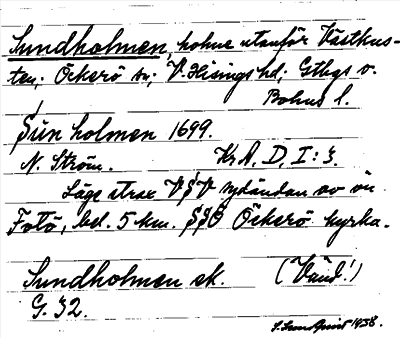 Sundholmen, holme utanför Västkus-
ten; Öckerö sn; V. Hisings hd; Gtbgs o.
Bohus l.
Sun holmen 1699.
N. Ström. Kr A, D, I: 3.
Läge strax V§V sydändan av ön
Fotö, bel. 5 km. S§Ö Öckerö kyrka.
Sundholmen ek. (Vänd!)
G. 32.
1938.